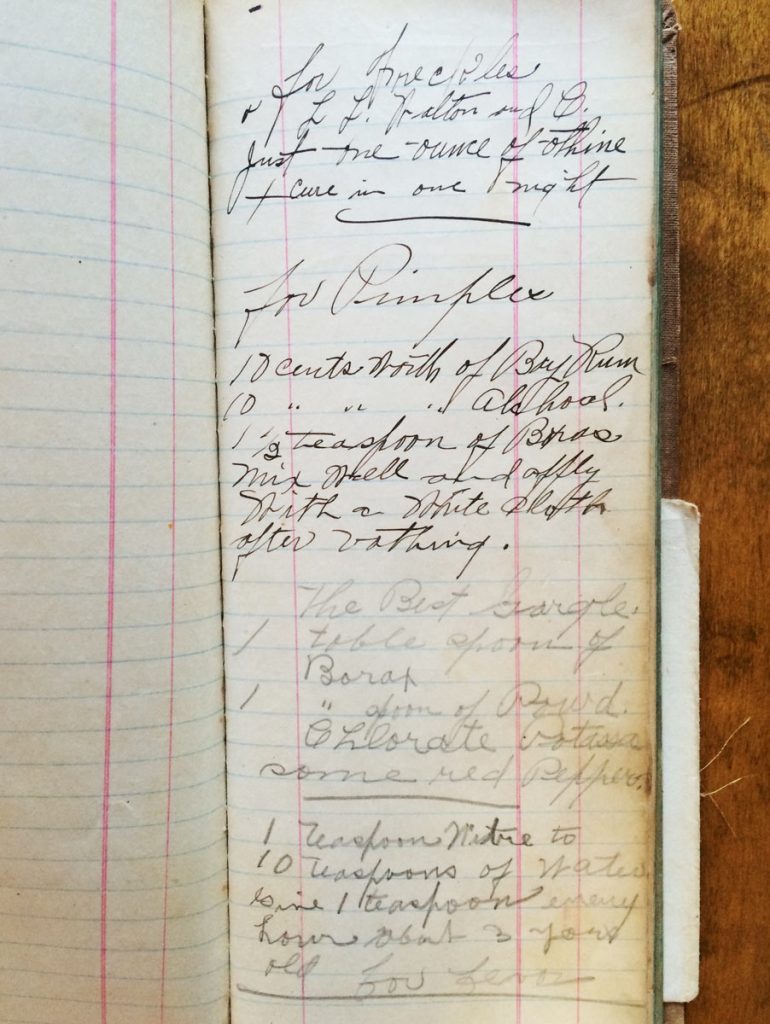 for Freckles
L L. Walton and C.
Just one ounce of othine
+ cure in one night
for Pimples
10 cents Worth of Bay Rum
10 " " " Alchoal.
1 1/2 teaspoon of Boras
Mix Well and apply
With a White Cloth
after bathing.
The Best Gargle.
1 table spoon of
Borax
1 " spoon of Powd.
Chlorate Potassa
some red Pepper.
1 Teaspoon Nitre to
10 Teaspoons of Water
Give 1 teaspoon every
hour about 3 years
old for fever